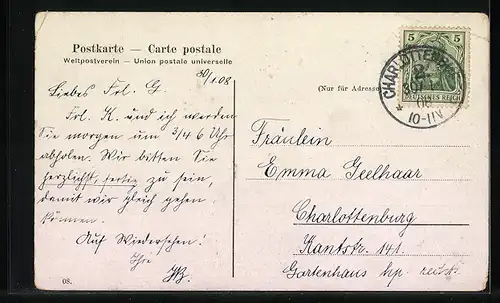 Postkarte — Carte postale
Weltpostverein — Union postale universelle
30/1.08
Liebes Frl. G.
Frl. K. und ich werden
Sie morgen um 3/4 6 Uhr
abholen. Wir bitten Sie
herzlichst, fertig zu sein,
damit wir gleich gehen
können.
Auf Wiedersehen!
Ihre
08.
(Nur für Adresse)
5 5
DEUTSCHES REICH
CHARLOTTENBURG
2
* 10-11V
Fräulein
Emma Geelhaar
Charlottenburg
Kantstr. 141.
Gartenhaus hp. rechts.